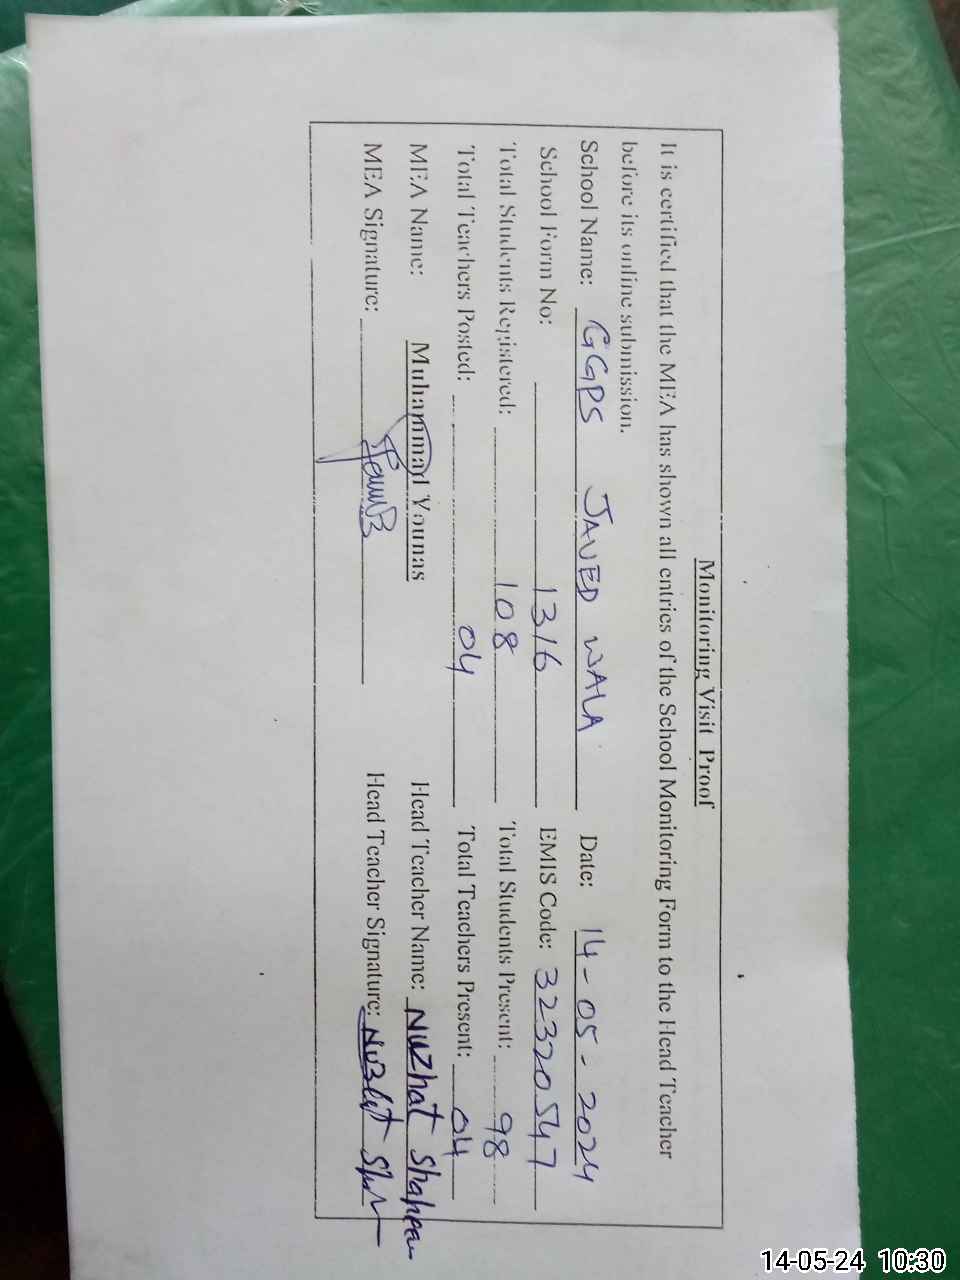 Monitoring Visit Proof
It is certified that the MEA has shown all entries of the School Monitoring Form to the Head Teacher
before its online submission.
School Name: GGPS JAVED WALA Date: 14-05-2024
School Form No: 1316 EMIS Code: 32320547
Total Students Registered: 108 Total Students Present: 98
Total Teachers Posted: 04 Total Teachers Present: 04
MEA Name: Muhammad Younas Head Teacher Name: Nuzhat Shaheen
MEA Signature: Head Teacher Signature: Nuzhat
14-05-24 10:30